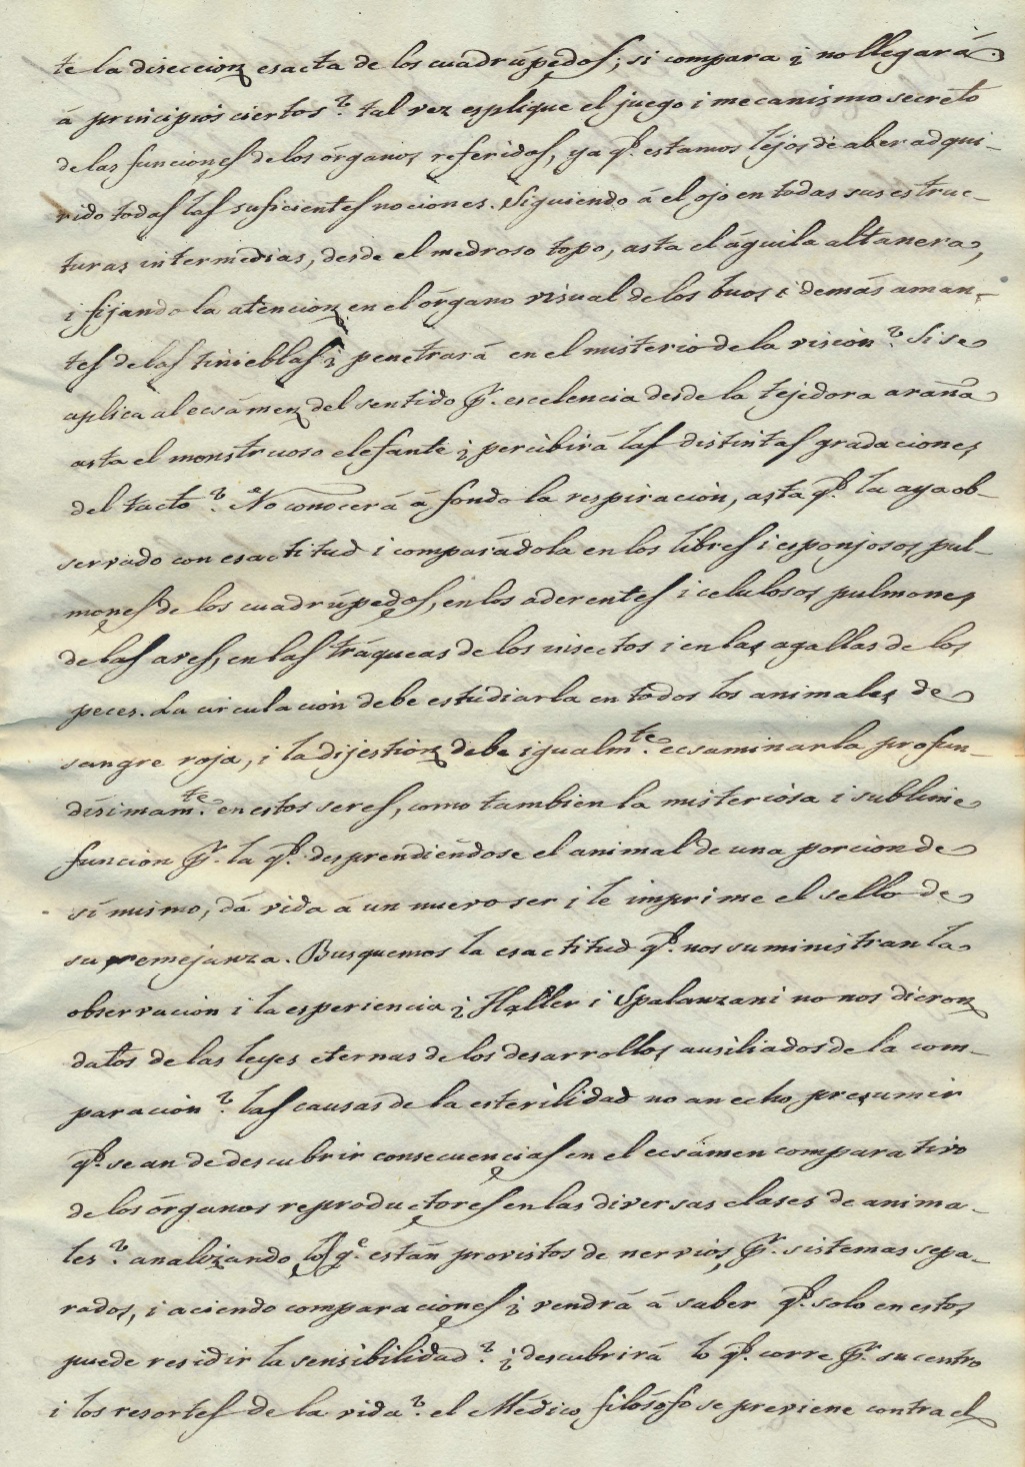 te la diseccion esacta de los cuadrúpedos; si compara ¿ no llegará
á principios ciertos? tal vez esplique el juego i mecanismo secreto
de las funciones de los órganos referidos, ya q.e estamos léjos de aber adqui-
rido todas las suficientes nociones. Siguiendo á el ojo en todas sus estruc-
turas intermedias, desde el medroso topo, asta el águila altanera,
i fijando la atencion en el órgano visual de los buos i demás aman-
tes de las tinieblas ¿ penetrará en el misterio de la vision? Si se
aplica al ecsámen del sentido p.r escelencia desde la tejedora araña
asta el monstruoso elefante ¿ percibirá las distintas gradaciones
del tacto? No conocerá á fondo la respiracion, asta q.e la aya ob-
servado con esactitud i comparádola en los libres i esponjosos pul-
mones de los cuadrúpedos, en los aderentes i celulosos pulmones
de las aves, en las tráqueas de los insectos i en las agallas de los
peces. La circulacion debe estudiarla en todos los animales de
sangre roja, i la dijestion debe igualm.te ecsaminarla profun-
dísimam.te en estos seres, como tambien la misteriosa i sublime
funcion p.r la q.e desprendiéndose el animal de una porcion de
sí mismo, dá vida á un nuevo ser i le imprime el sello de
su semejanza. Busquemos la esactitud q.e nos suministran la
observacion i la esperiencia ¿ Haller i Spalanzani no nos dieron
datos de las leyes eternas de los desarrollos ausiliados de la com-
paracion? las causas de la esterilidad no an echo presumir
q.e se an de descubrir consecuencias en el ecsámen comparativo
de los órganos reproductores en las diversas clases de anima-
les? analizando los q.e están provistos de nervios, p.r sistemas sepa-
rados, i aciendo comparaciones ¿ vendrá á saber q.e solo en estos
puede residir la sensibilidad? ¿ descubrirá lo q.e corre p.r su centro
i los resortes de la vida? el Médico filósofo se previene contra el